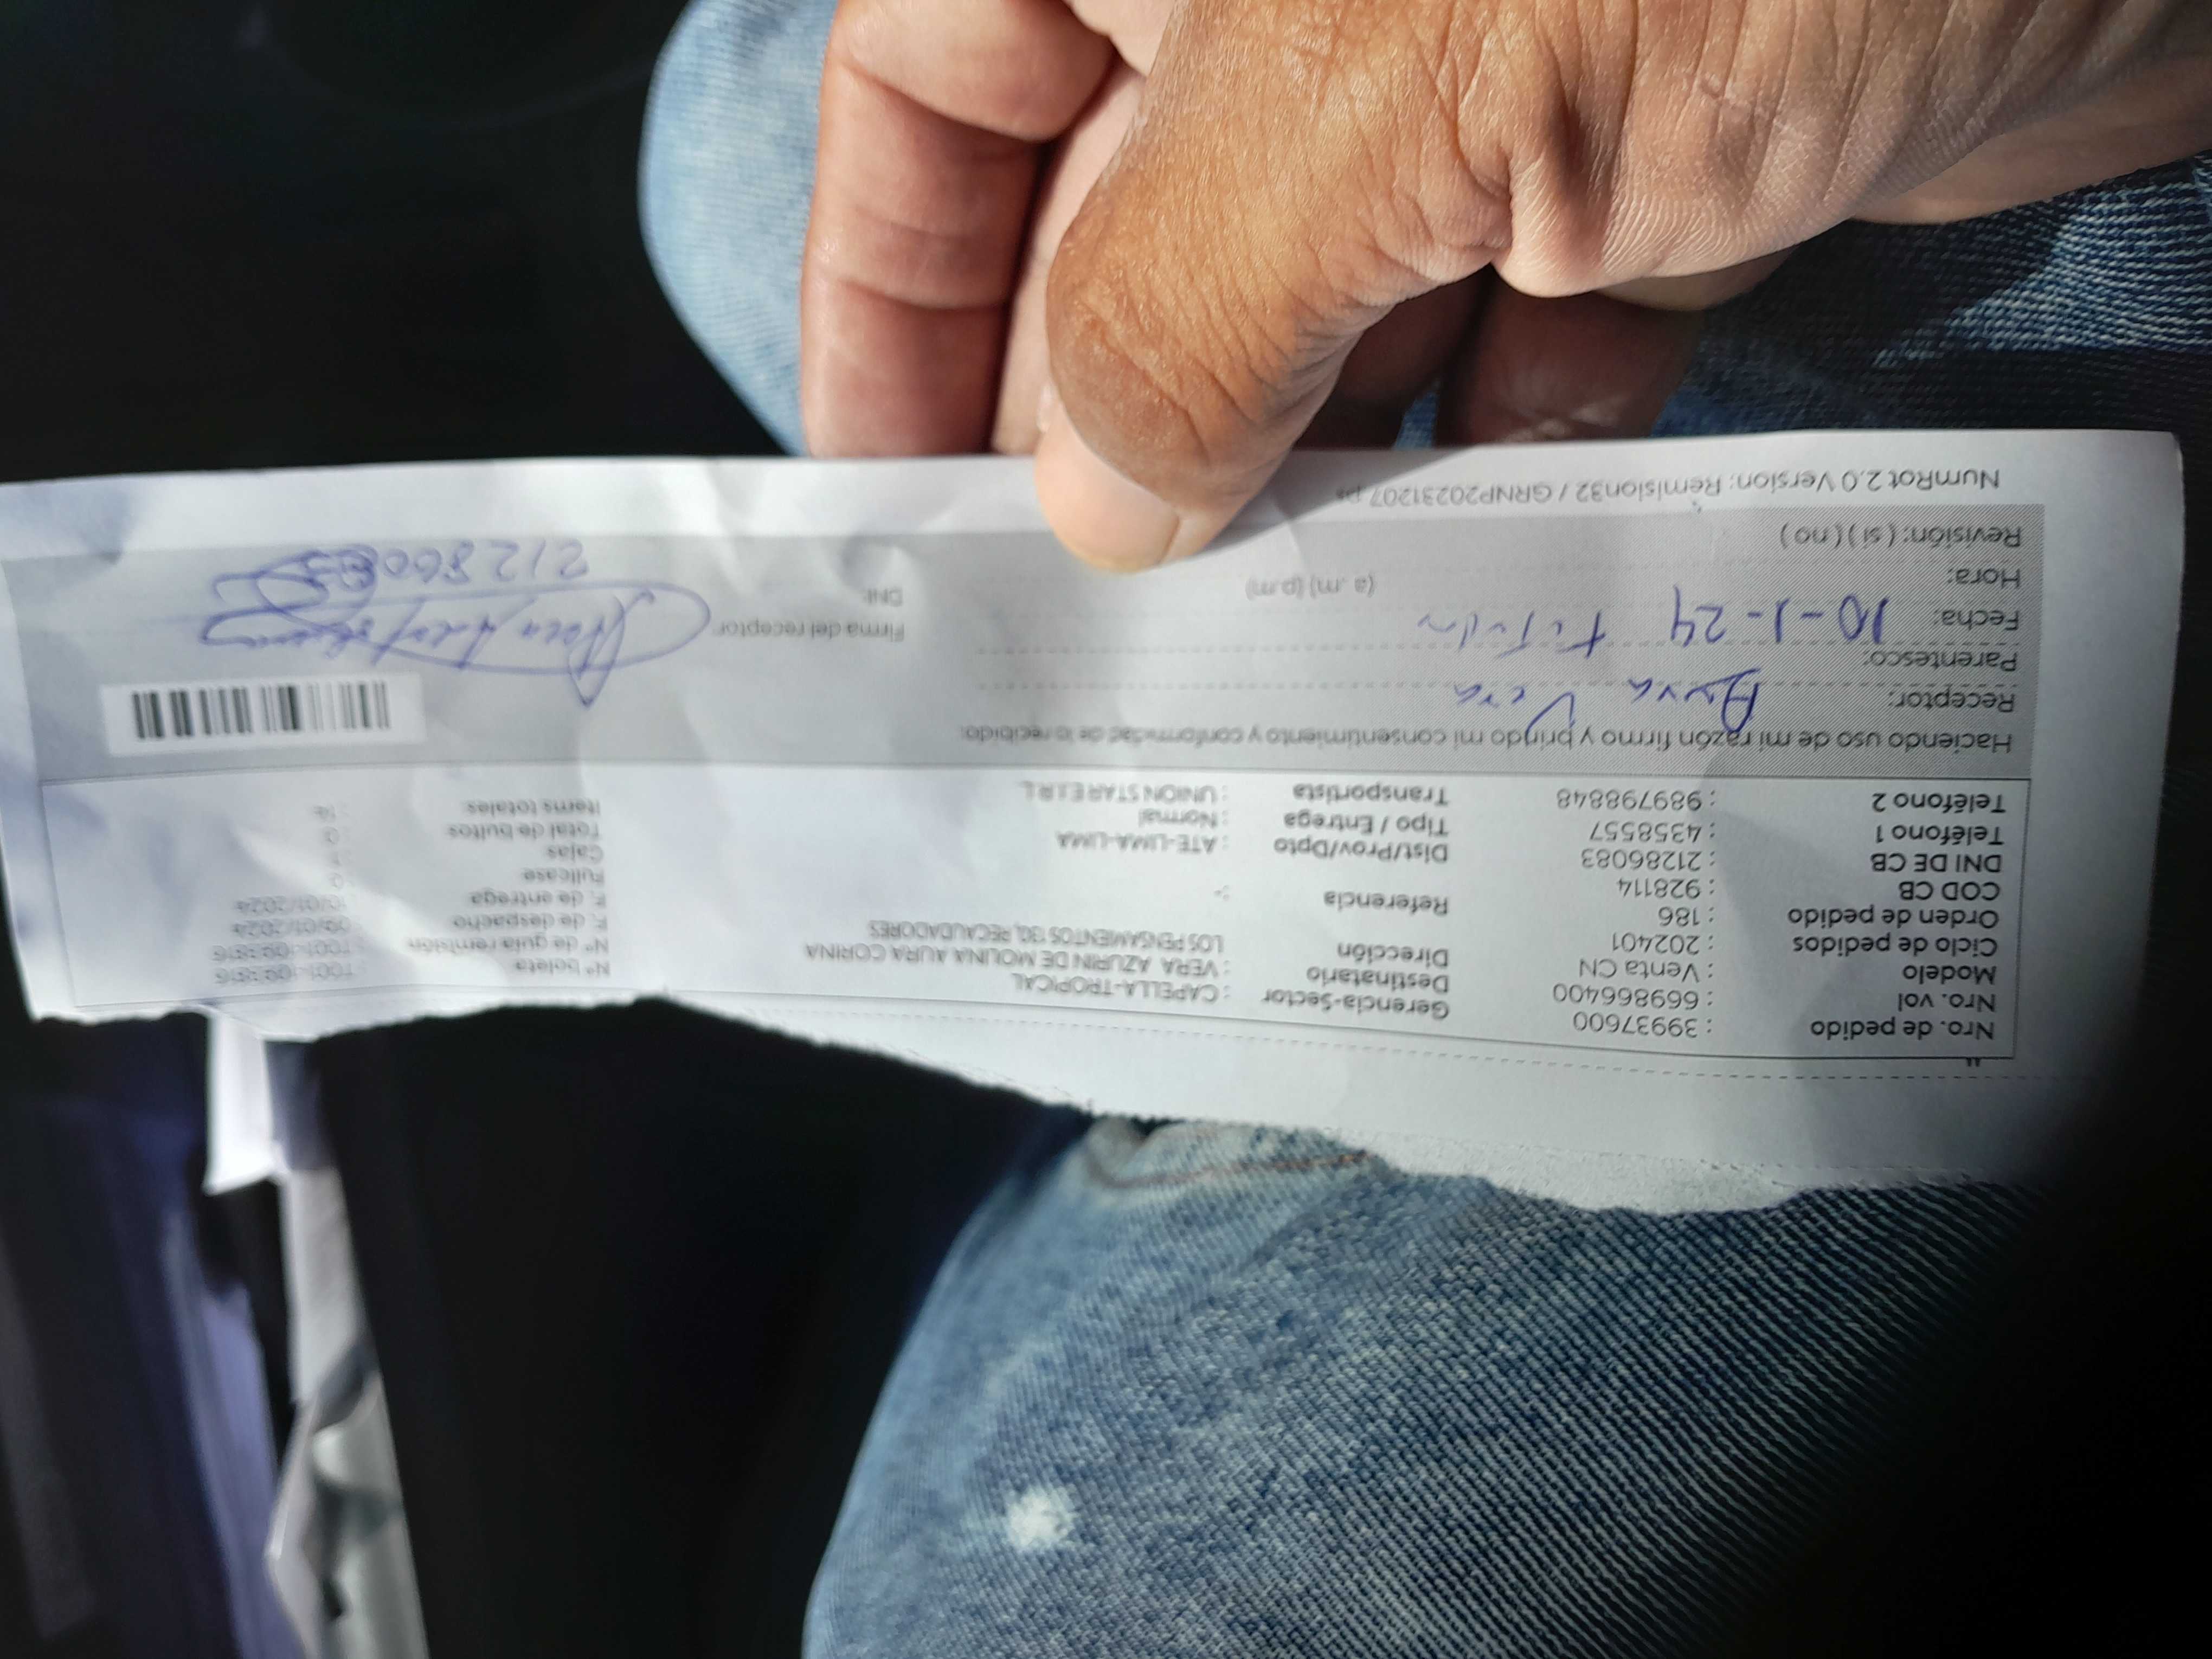 Nro. de pedido : 39937600
Nro. vol : 669866400
Modelo : Venta CN
Ciclo de pedidos : 202401
Orden de pedido : 186
COD CB : 928114
DNI DE CB : 21286083
Teléfono 1 : 4358557
Teléfono 2 : 989798848
Gerencia-Sector : CAPELLA-TROPICAL
Destinatario : VERA AZURIN DE MOLINA AURA CORINA
Dirección : LOS PENSAMIENTOS 130, RECAUDADORES
Referencia : -
Dist/Prov/Dpto : ATE-LIMA-LIMA
Tipo / Entrega : Normal
Transportista : UNION STAR E.I.R.L
N° boleta
N° de guia remisión
F. de despacho : 09/01/2024
F. de entrega : 10/01/2024
Fullcase : 0
Cajas
Total de bultos
Items totales
Haciendo uso de mi razón firmo y brindo mi consentimiento y conformidad de lo recibido:
Receptor: Aura Vera
Parentesco: Titular
Fecha: 10-1-24
Hora: (a .m) (p.m)
Revisión: ( si ) ( no )
Firma del receptor
DNI:
NumRot 2.0 Version: Remision32 / GRNP20231207